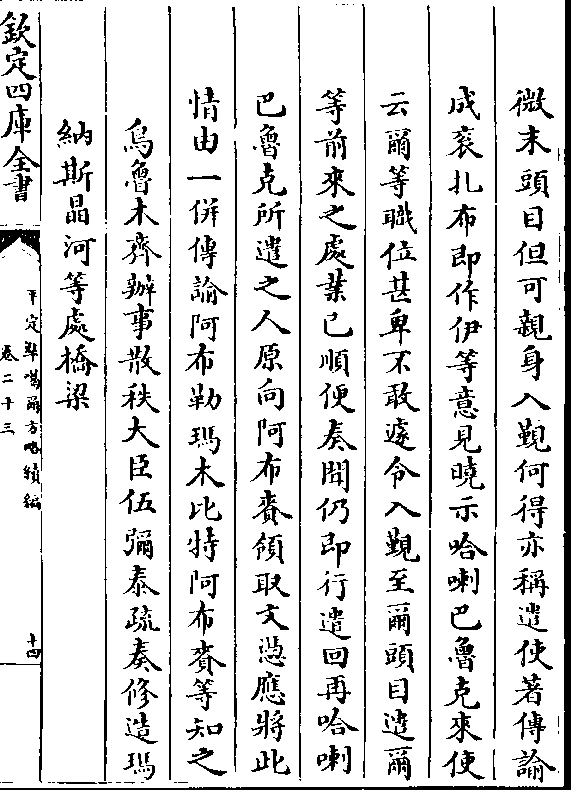 微末頭目但可親身入覲何得亦稱遣使著傳諭
成衮扎布即作伊等意見曉示哈喇巴魯克來使
云爾等職位甚卑不敢遽令入覲至爾頭目遣爾
等前來之處業已順便奏聞仍即行遣回再哈喇
巴魯克所遣之人原向阿布賚領取文憑應將此
情由一併傳諭阿布勒瑪木比特阿布賚等知之
烏魯木齊辦事散秩大臣伍彌泰疏奏修造瑪
納斯晶河等處橋梁
欽定四庫全書
平定準噶爾方略續編
卷二十三
十四